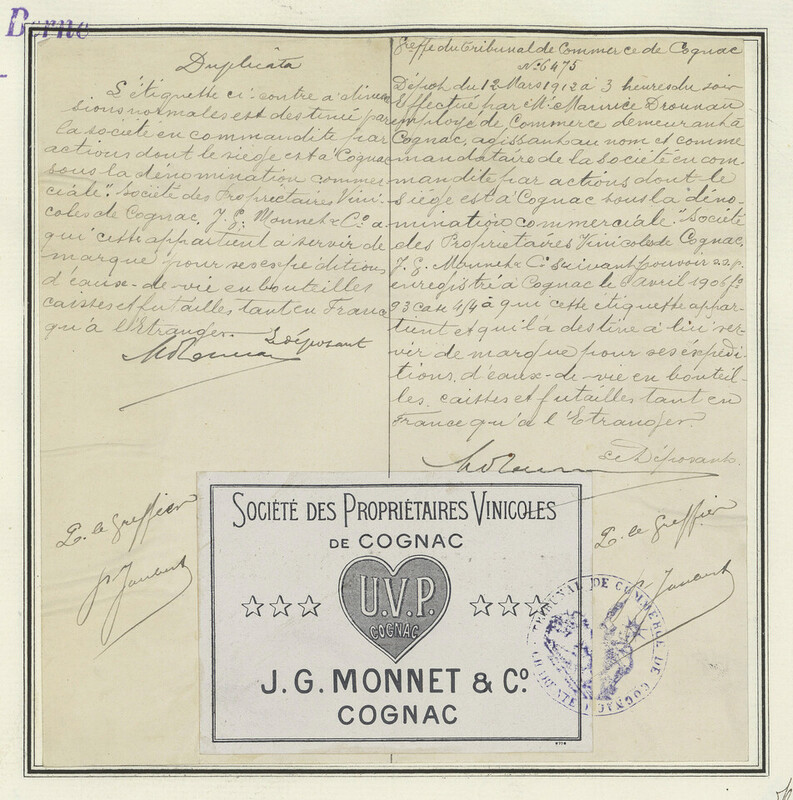 Berne
Duplicata
L'étiquette ci-contre à dimen
sions normales est destinée par
la société en commandite par
actions dont le siège est à Cognac
sous la dénomination commer
ciale "Société des Propriétaires Vini
coles de Cognac, J. G. Monnet & Co. a
qui cette appartient à servir de
marque pour ses expéditions
d'eaux-de-vie en bouteilles
caisses et futailles tant en France
qu'à l'Etranger.
Le déposant
P. le Greffier
Greffe du Tribunal de Commerce de Cognac
No. 6475
Dépôt du 12 Mars 1912 à 3 heures du soir
Effectué par Mr. Maurice Drounau
employé de Commerce demeurant à
Cognac, agissant au nom et comme
mandataire de la société en com
mandite par actions dont le
siège est à Cognac sous la déno
mination commerciale "Société
des Propriétaires Vinicoles de Cognac,
J. G. Monnet & Co suivant pouvoir
enregistré à Cognac le avril 1906 fo
93 case 4/4 à qui cette étiquette appar
tient et qu'il a destine à lui ser
vir de marque pour ses expédi
tions d'eaux-de-vie en bouteil
les, caisses et futailles tant en
France qu'à l'Etranger.
Le Déposant.
P. le Greffier
SOCIÉTÉ DES PROPRIÉTAIRES VINICOLES
DE COGNAC
U.V.P.
COGNAC
J.G. MONNET & Co.
COGNAC
TRIBUNAL DE COMMERCE DE COGNAC
CHARENTE